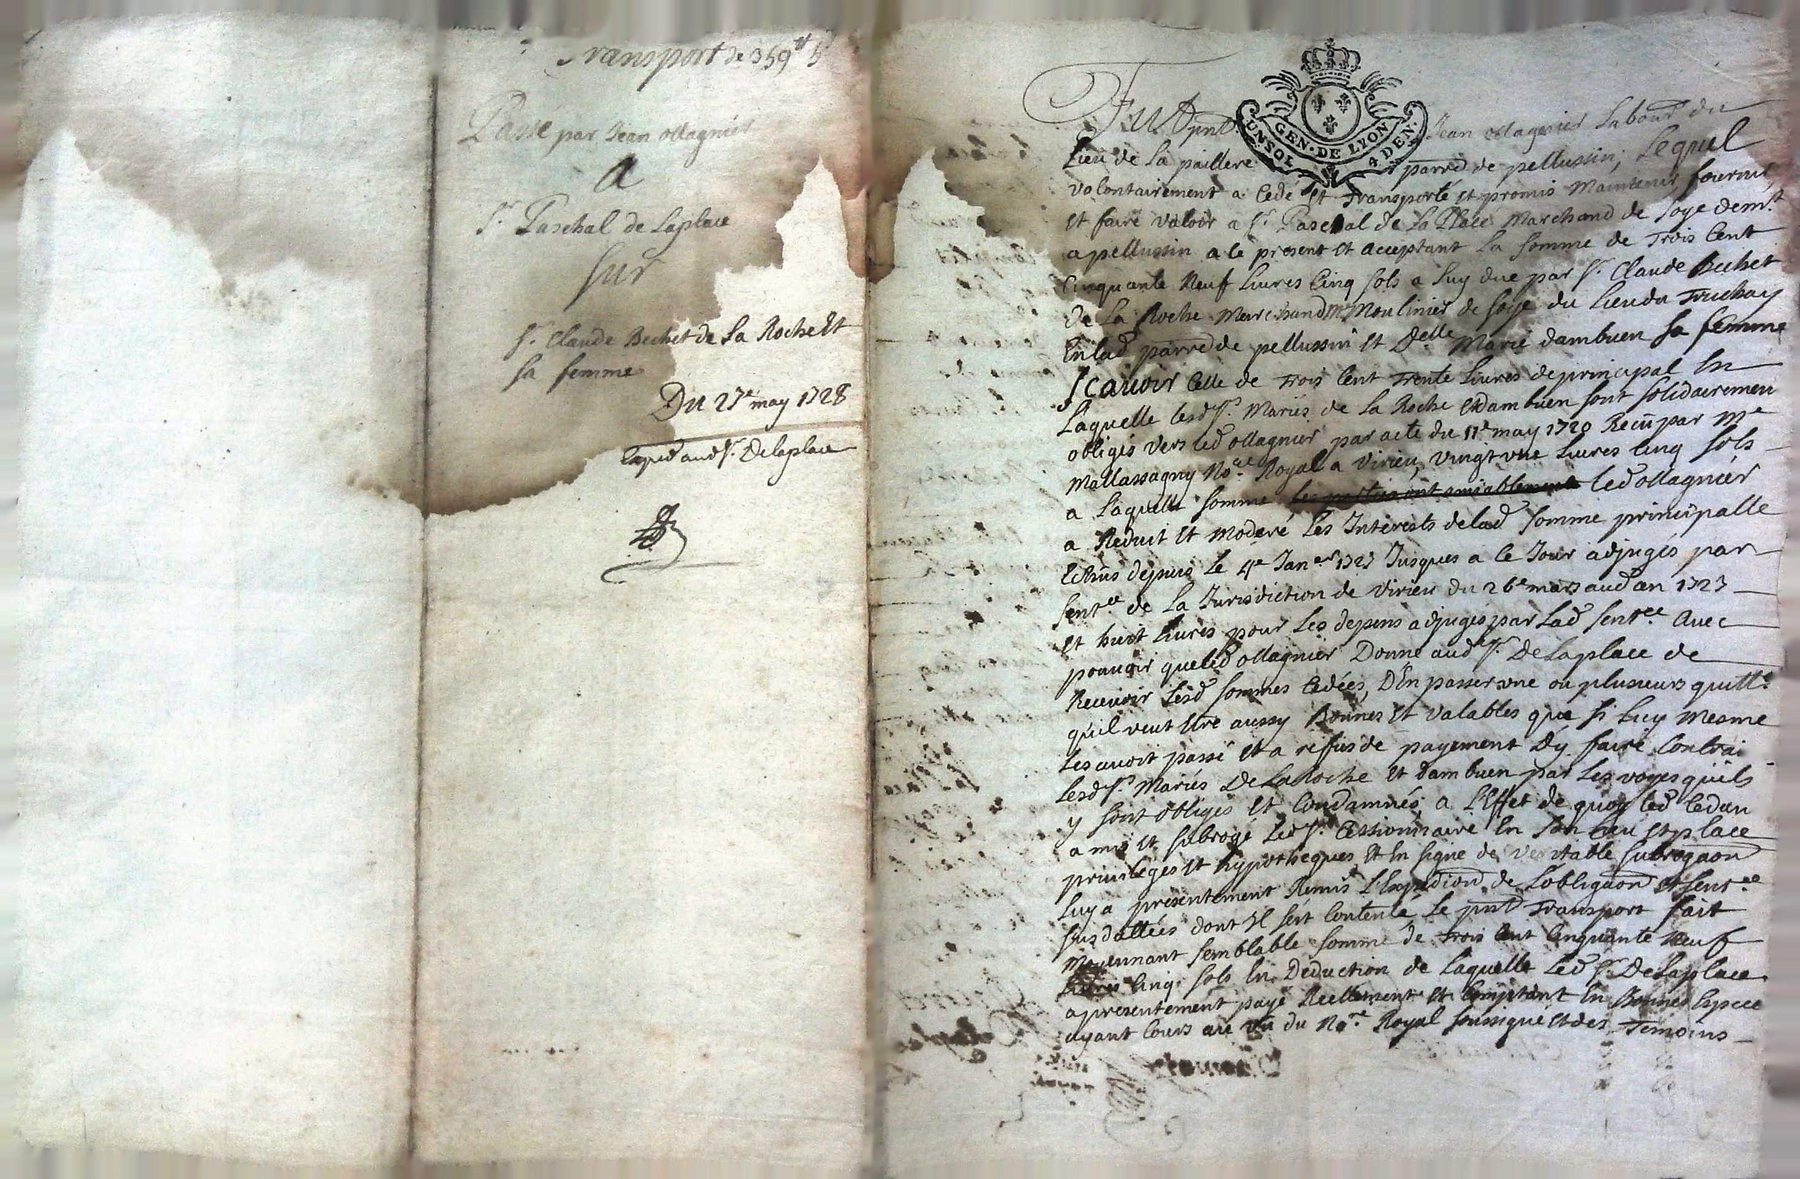 Transport de 359 ₶ 5
Passé par Jean ollagnier
A
Sr. Paschal de Laplace
sur
Sr. Claude Bechet de La Roche Et
sa femme
Du 27e may 1728
Exped aud Sr. Delaplace
GEN. DE LYON
UN SOL 4 DEN.
Fut pnt Jean ollagnier Labour du
Lieu de La paillere parred de pellussin, Lequel
volontairement a Cedé Et Transporté Et promis Maintenir fournir
Et faire valoir a Sr. Paschal de La Place Marchand de soye demt
a pellussin a ce present Et acceptant La somme de Trois Cent
Cinquante Neuf Livres Cinq sols a Luy due par Sr. Claude Bechet
de La Roche Marchand Moulinier de soye du Lieu du
En lad parred de pellussin Et Delle Marie dambuen sa femme
Scavoir Celle de Trois Cent Trente Livres de principal En
Laquelle lesd Srs. Mariés de La Roche Et dambuen sont solidairemen
obligés vers led ollagnier par acte du 11e may 1720 Receu par Me
Mallassagny Nore Royal a Virieu, vingt une Livres Cinq sols
a Laquelle somme les parties ont amiablement led ollagnier
a Reduit Et moderé Les Interests delad somme principalle
Echus depuis le 4e Janer 1727 Jusques a Ce Jour adjugés par
Sentce de La Jurisdiction de Virieu du 26e mars aud an 1727
Et huit Livres pour Les depens adjugés par Lad Sentce Avec
pouvoir queled ollagnier Donne aud Sr. Delaplace de
Recevoir Lesd sommes Cedées, D'En passer une ou plusieurs quitt.
qu'il veut Etre aussy Bonnes Et valables que si Luy Mesme
Les avoit passé Et a refus de payement D'y faire Contrai
Lesd Srs. Mariés De La Roche Et dambuen par Les voyes qu'ils
y sont obligés Et Condamnés, a L'Effet de quoy led Cedan
a mis Et subrogé Led Sr. Cessionnaire En son Lieu Et place
privileges Et hypotheques Et En signe de veritable subrogaon
Luy a presentement Remis L'Expedion de Lobligaon Et Sentce
sus dattées dont Il s'est Contenté, Le pnt Transport fait
Moyennant semblable somme de Trois Cent Cinquante Neuf
Livres Cinq sols En Deduction de Laquelle Led Sr. Delaplace
a presentement payé Reellement Et Comptant En Bonnes Espece
ayant Cours au vu du Nore Royal soussigné Et des Temoins